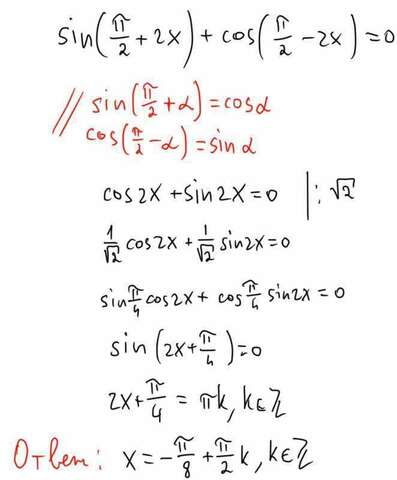 sin(π/2 + 2x) + cos(π/2 - 2x) = 0
// sin(π/2 + α) = cosα
cos(π/2 - α) = sin α
cos2x + sin2x = 0 | : √2
1/√2 cos2x + 1/√2 sin2x = 0
sin π/4 cos2x + cos π/4 sin2x = 0
sin (2x + π/4) = 0
2x + π/4 = πk, k∈ℤ
Ответ: x = -π/8 + π/2 k, k∈ℤ